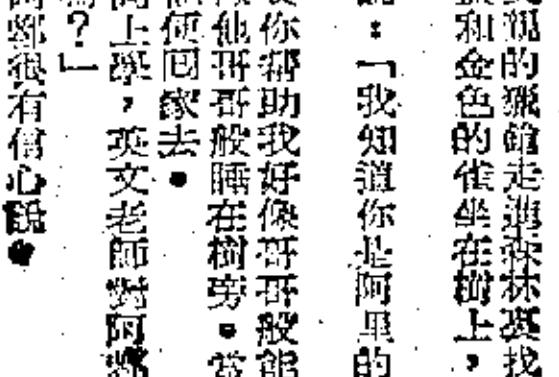 的獵鎗走進森林裏找
和金色的雀坐在樹上，
：「我知道你是阿里的
你幫助我好像哥哥般能
他哥哥般睡在樹旁。當
便回家去。
上學，英文老師對阿
？」
都很有信心說。